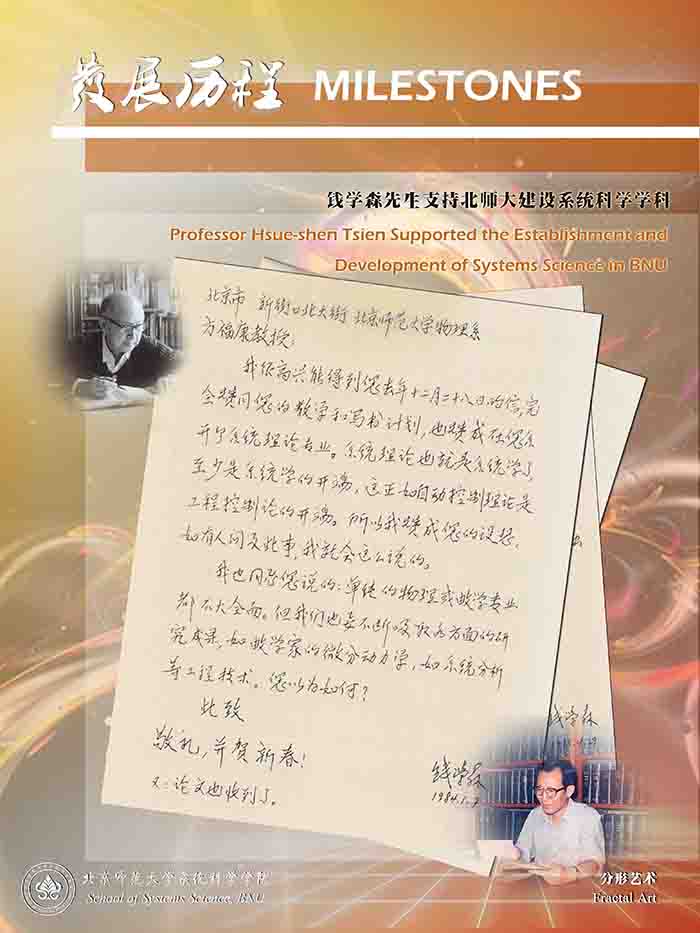 发展历程 MILESTONES
钱学森先生支持北师大建设系统科学学科
Professor Hsue-shen Tsien Supported the Establishment and
Development of Systems Science in BNU
北京市 新街口北大街 北京师范大学物理系
方福康教授:
我很高兴能得到您去年十二月二十八日的信,完
全赞同您的教学和写书计划,也赞成在您系
开个系统理论专业。系统理论也就是系统学了,
至少是系统学的开端,这正如自动控制理论是
工程控制论的开端。所以我赞成您的设想,
如有人问及此事,我就会这么说的。
我也同意您说的:单纯的物理或数学专业
都不大全面。但我们也要不断吸取各方面的研
究成果,如数学家的微分动力学,如系统分析
等工程技术。您以为如何?
此致
敬礼,并贺新春!
钱学森
1984.1.
又:论文也收到了。
钱学森
北京师范大学系统科学学院
School of Systems Science, BNU
分形艺术
Fractal Art